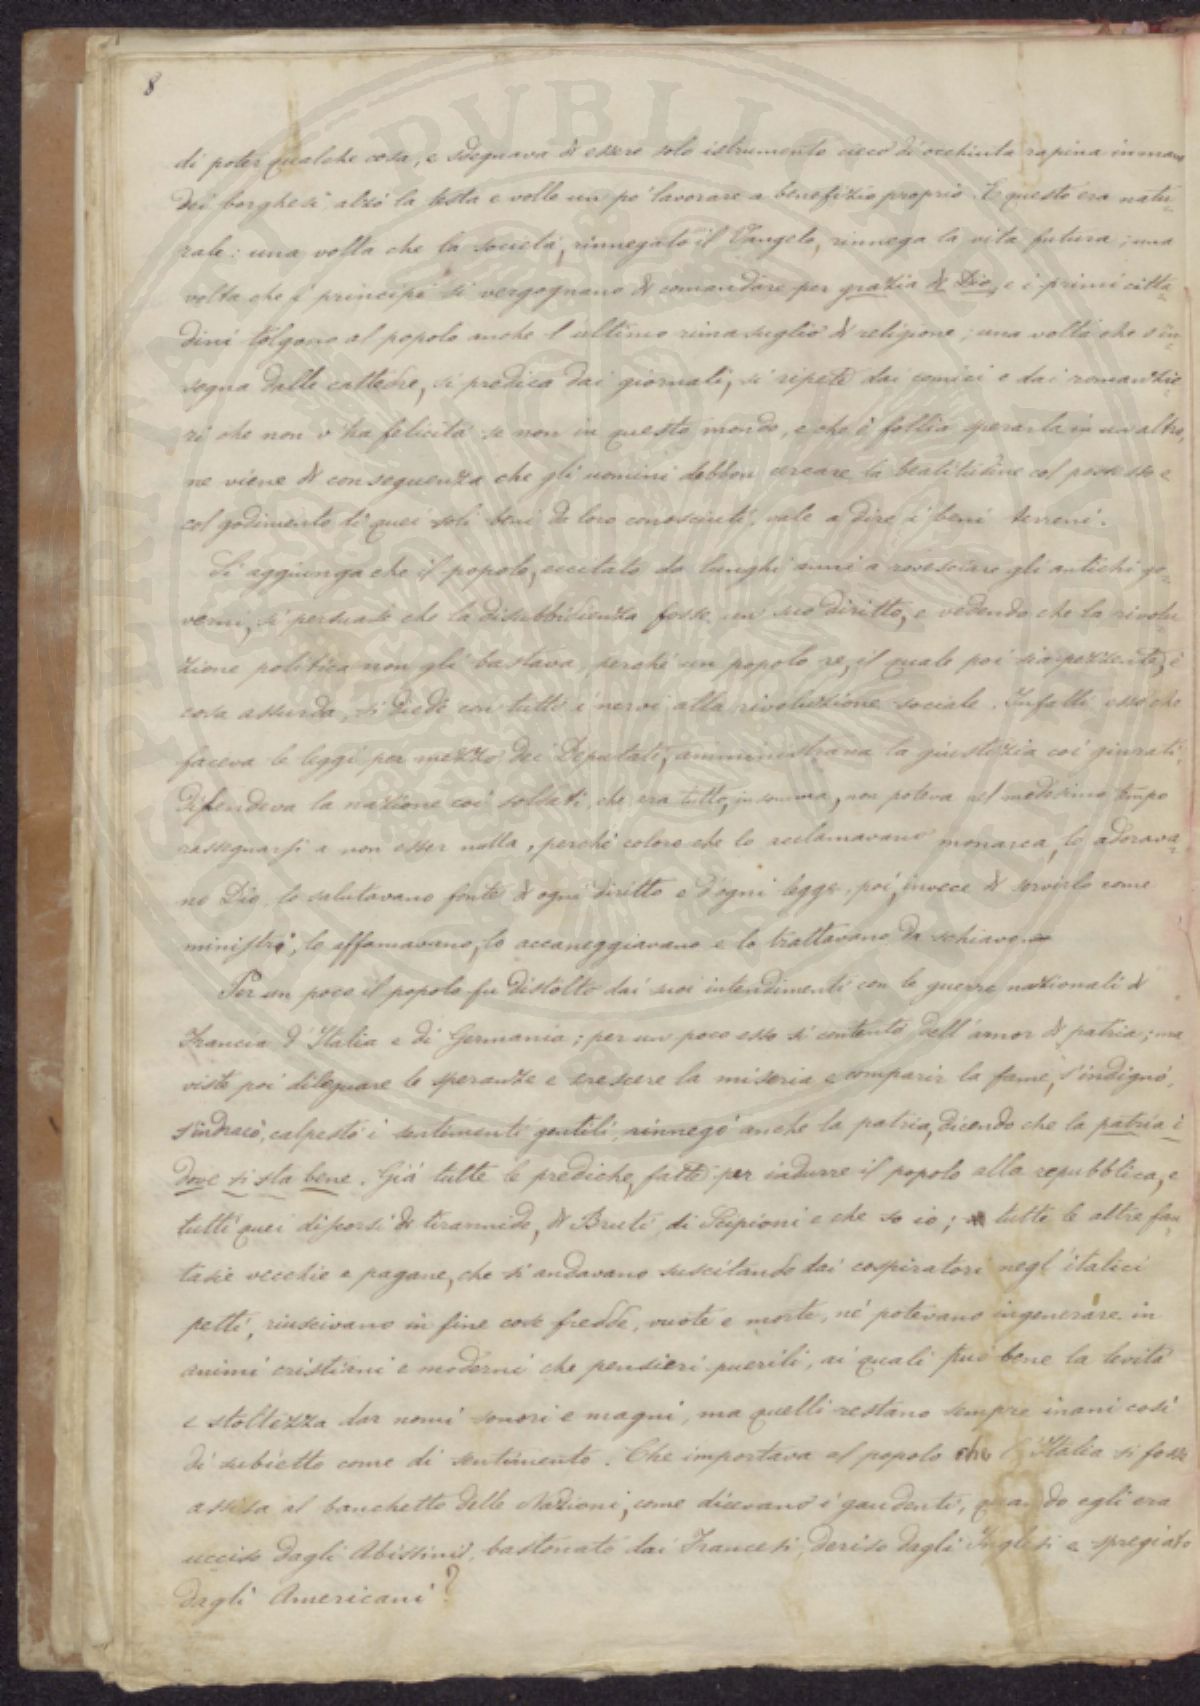 8
di poter qualche cosa, e sdegnava di essere solo istrumento cieco di occhiuta rapina in mano
dei borghesi, alzò la testa e volle un po' lavorare a benefizio proprio. E questo era natu-
rale: una volta che la società, rinnegato il Vangelo, rinnega la vita futura; una
volta che i principi si vergognano di comandare per grazia di Dio, e i primi citta-
dini tolgono al popolo anche l'ultimo rimasuglio di religione; una volta che s'in-
segna dalle cattedre, si predica dai giornali, si ripete dai comici e dai romanzie-
ri che non v'ha felicità se non in questo mondo, e che è follia sperarla in un altro,
ne viene di conseguenza che gli uomini debbon cercare la beatitudine col possesso e
col godimento di quei soli beni da loro conosciuti, vale a dire i beni terreni.
Si aggiunga che il popolo, eccitato da lunghi anni a rovesciare gli antichi go-
verni, si persuase che la disubbidienza fosse un suo diritto, e vedendo che la rivolu-
zione politica non gli bastava, perché un popolo re, il quale poi sia pezzente, è
cosa assurda, si diede con tutti i nervi alla rivoluzione sociale. Infatti esso che
faceva le leggi per mezzo dei Deputati, amministrava la giustizia coi giurati,
difendeva la nazione coi soldati, che era tutto, insomma, non poteva nel medesimo tempo
rassegnarsi a non esser nulla, perché coloro che lo acclamavano monarca, lo adorava-
no Dio, lo salutavano fonte di ogni diritto e d'ogni legge, poi, invece di servirlo come
ministri, lo affamavano, lo accaneggiavano e lo trattavano da schiavo.
Per un poco il popolo fu distolto dai suoi intendimenti con le guerre nazionali di
Francia d'Italia e di Germania; per un poco esso si contentò dell'amor di patria; ma
viste poi dileguare le speranze e crescere la miseria e comparir la fame, s'indignò,
s'indracò, calpestò i sentimenti gentili, rinnegò anche la patria, dicendo che la patria è
dove si sta bene. Già tutte le prediche, fatte per indurre il popolo alla repubblica, e
tutti quei discorsi di tirannide, di Bruti, di Scipioni e che so io; tutte le altre fan-
tasie vecchie e pagane, che si andavano suscitando dai cospiratori negl'italici
petti, riuscivano in fine cose fredde, vuote e morte, né potevano ingenerare in
animi cristiani e moderni che pensieri puerili, ai quali può bene la levità
e stoltezza dar nomi sonori e magni, ma quelli restano sempre inani così
di subietto come di sentimento. Che importava al popolo che l'Italia si fosse
assisa al banchetto delle Nazioni, come dicevano i gaudenti, quando egli era
ucciso dagli Abissini, bastonato dai Francesi, deriso dagli Inglesi e spregiato
dagli Americani?